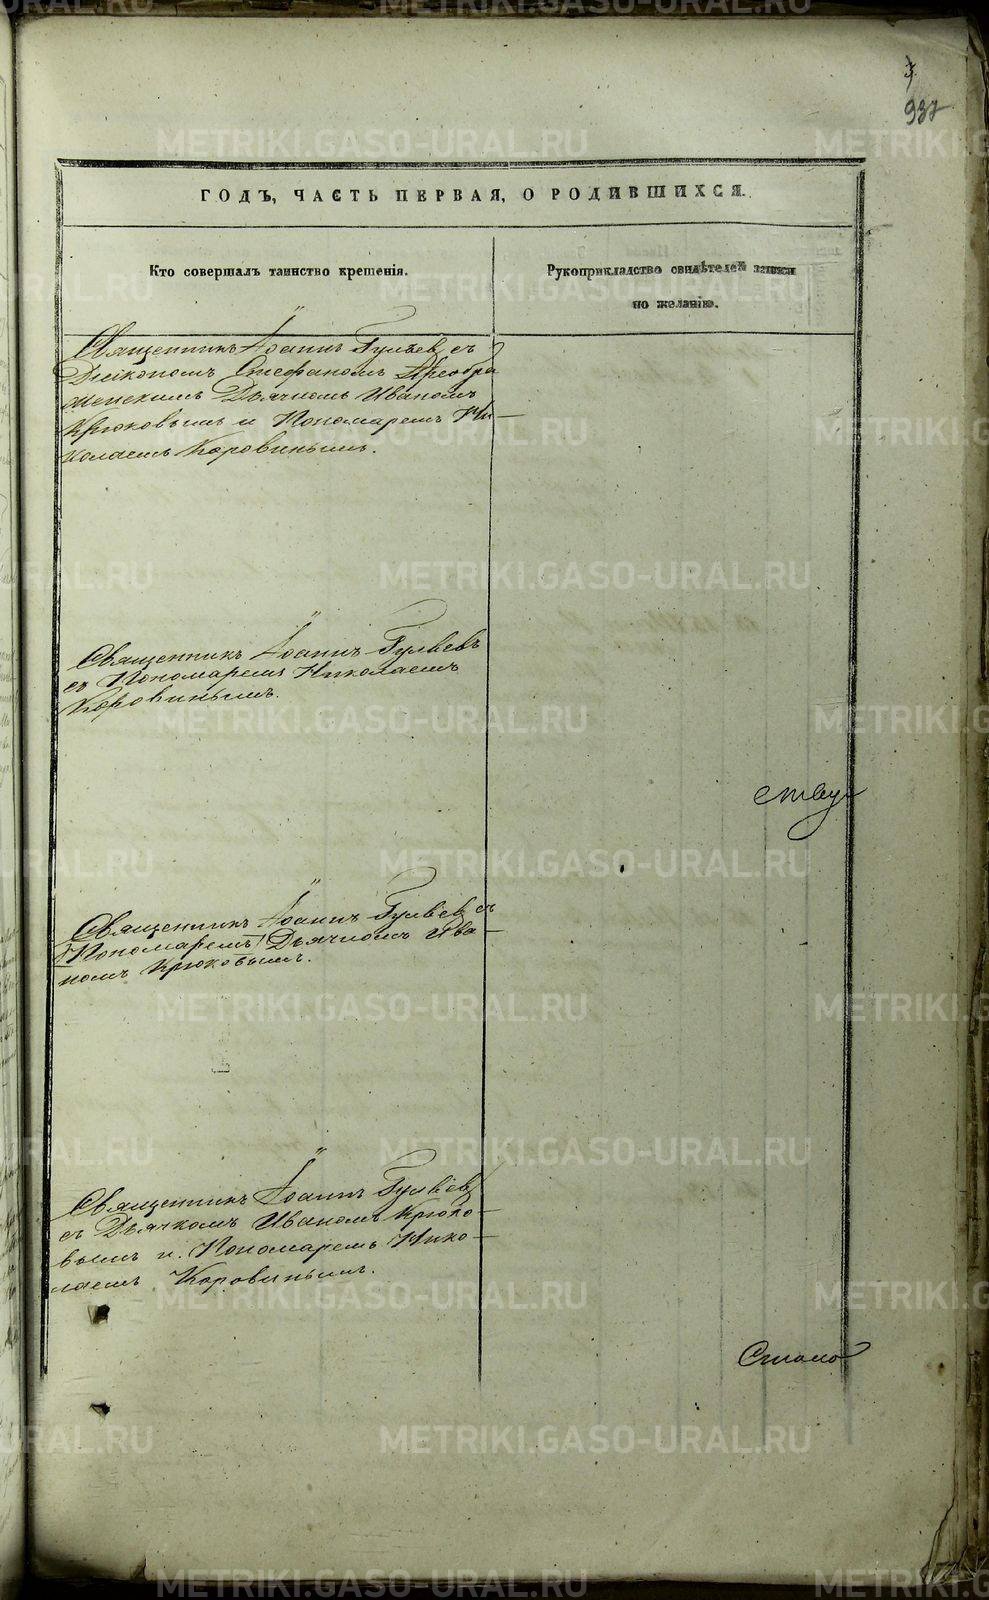 937
ГОДЪ, ЧАСТЬ ПЕРВАЯ, О РОДИВШИХСЯ.
Кто совершалъ таинство крещенія.
Рукоприкладство свидѣтелей записи
по желанію.
Священникъ Іоаннъ Гуляевъ съ
Діякономъ Стефаномъ Преобра
женскимъ Дьячкомъ Иваномъ
Крюковымъ и Пономаремъ Ни-
колаемъ Коровинымъ.
Священникъ Іоаннъ Гуляевъ
съ Пономаремъ Николаемъ
Коровинымъ.
ству
Священникъ Іоаннъ Гуляевъ съ
Пономаремъ Дьячкомъ Ива-
номъ Крюковымъ.
Священникъ Іоаннъ Гуляевъ
съ Дьячкомъ Иваномъ Крюко-
вымъ и Пономаремъ Нико-
лаемъ Коровинымъ.
METRIKI.GASO-URAL.RU